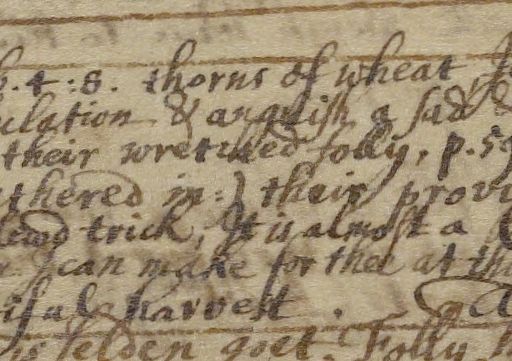 4:8. thorns of wheat
ulation & anguish a sad
their wretched folly, p.59
thered in:) their provi
lewd trick, It is almost a
I can make for thee at th
iful harvest.
is selden goet. Folly